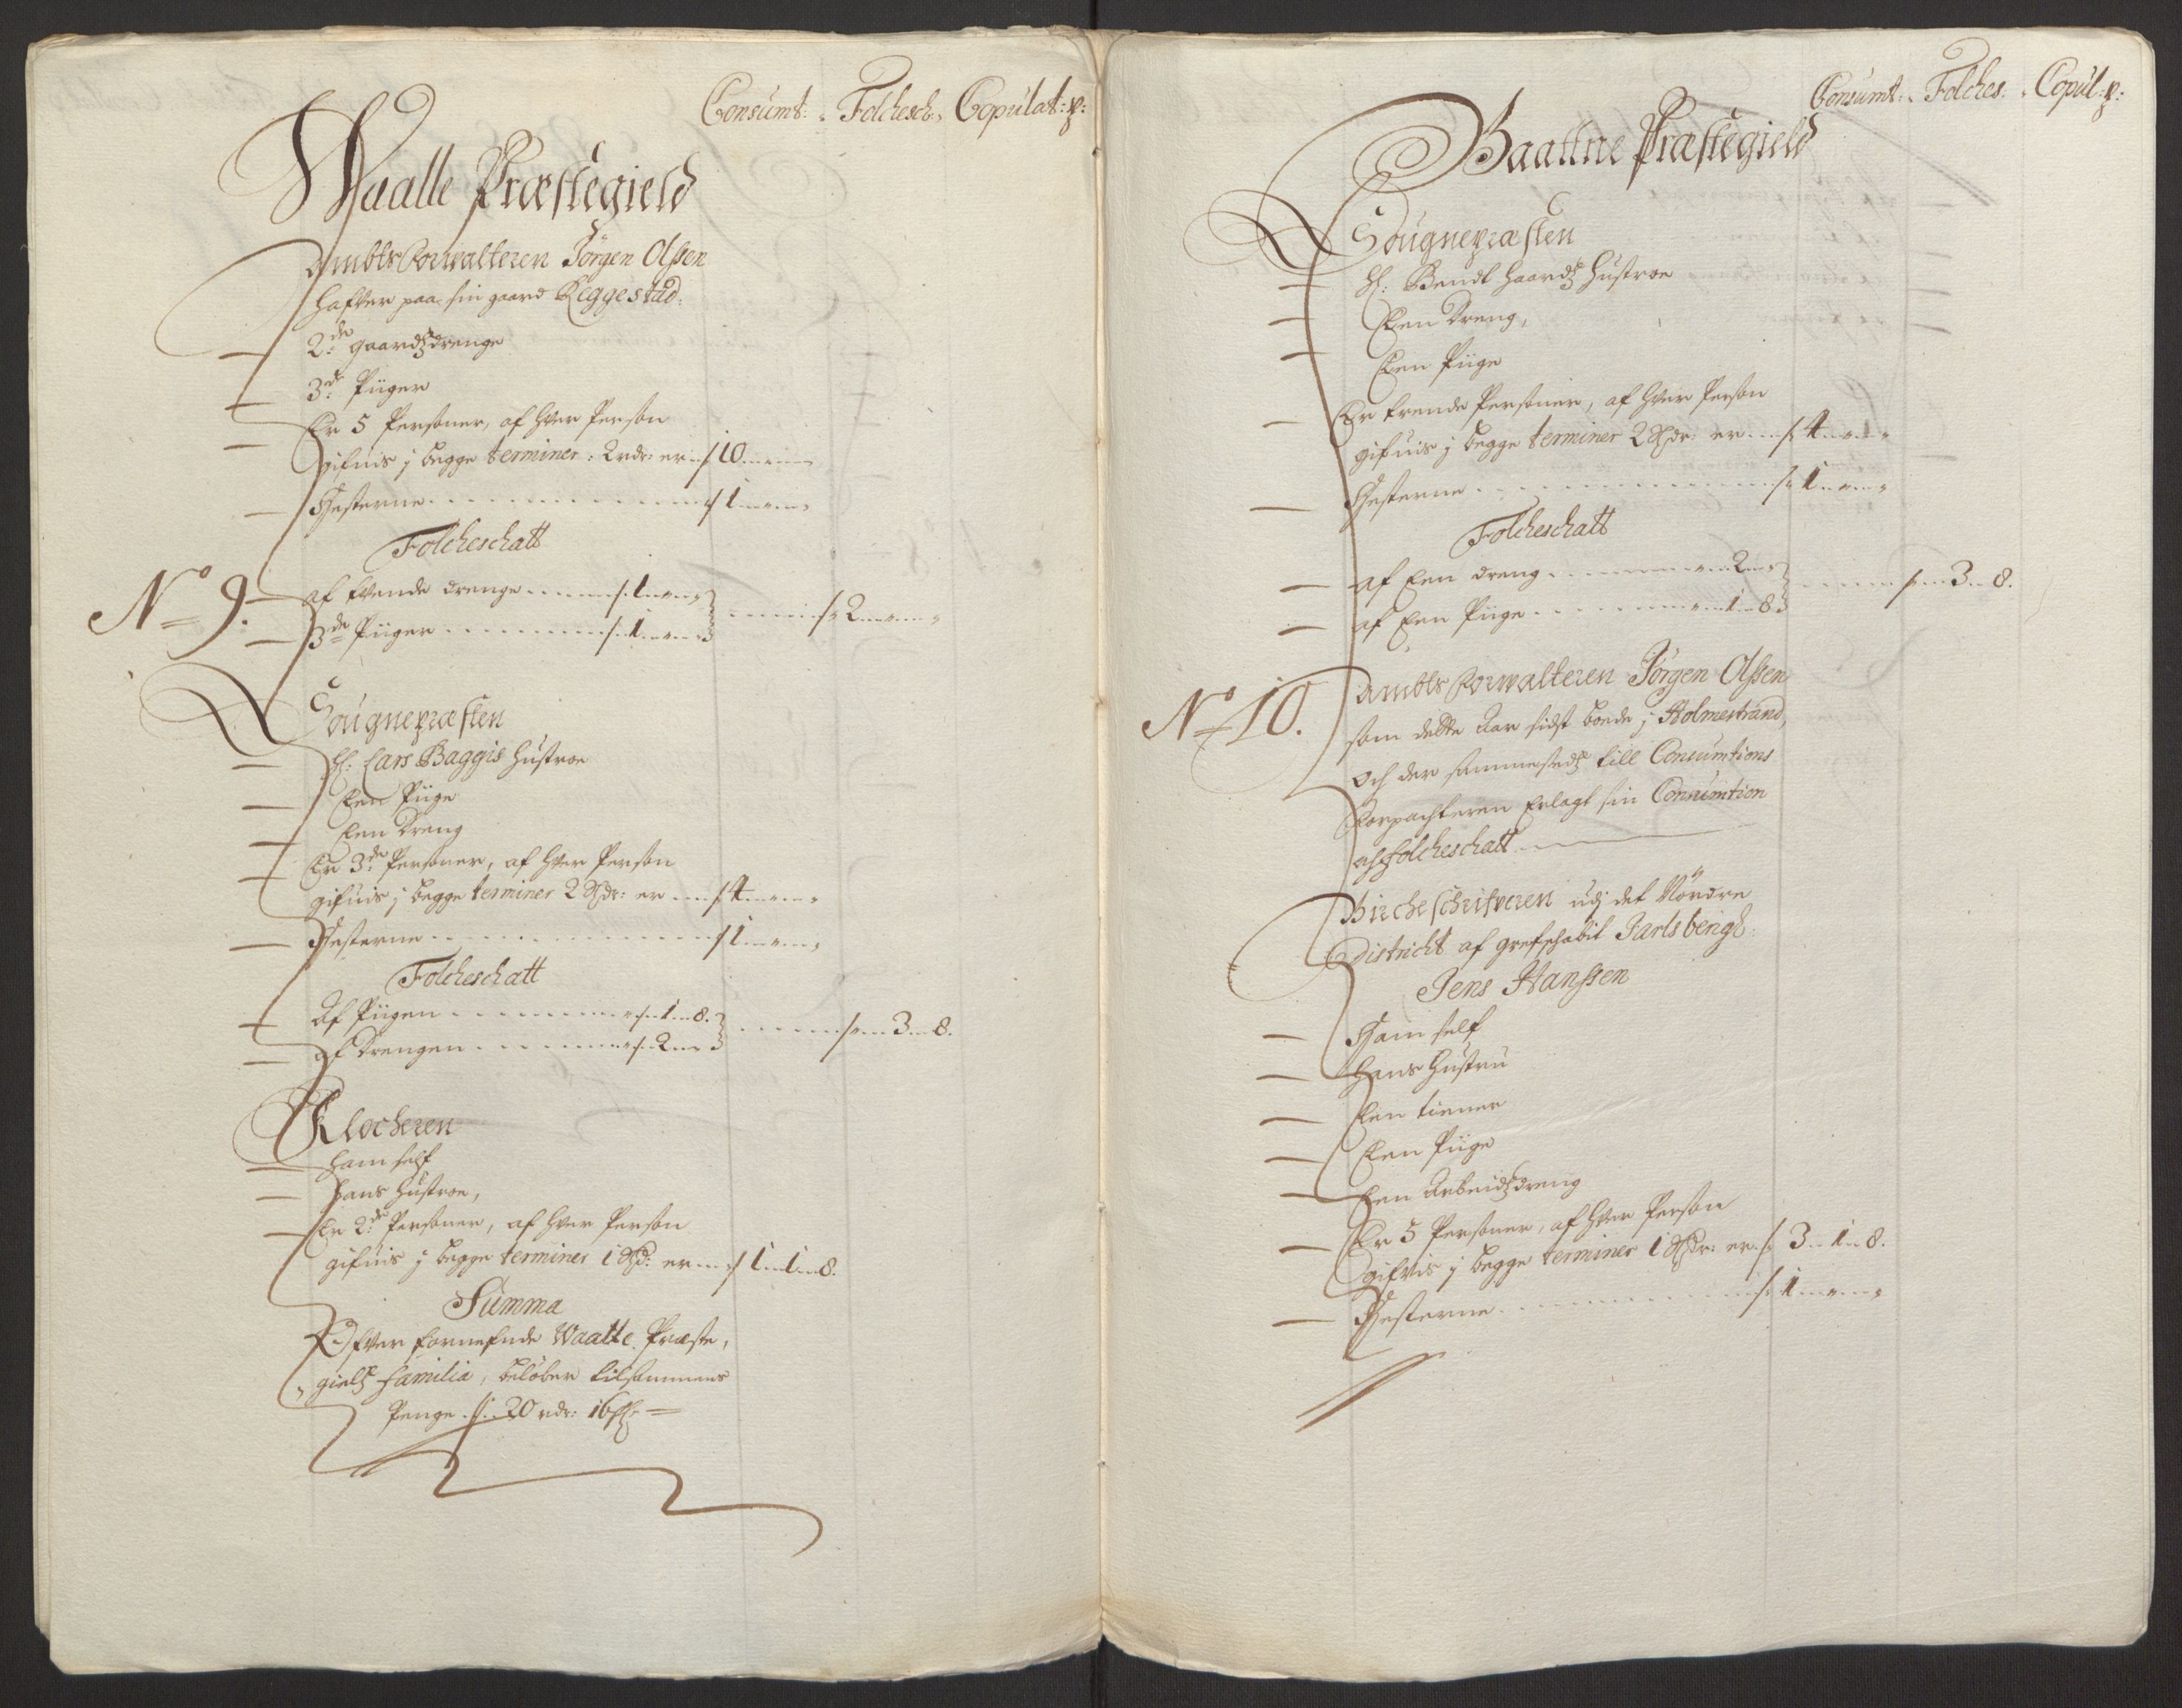 Consumt: Folchesch: Copulat: p:
Waalle Præstegield
Ambts Forwalteren Jörgen Olssen
hafver paa sin gaard Reggestad:
2de gaardsdrenge
3de Piiger
Er 5 Personer, af hver Person
gifuis j begge terminer: 2 rdr: er 10
Hesterne 1
Folcheschatt
No 9.
af tvende drenge 1
3de Piiger 1 2
Sougnepræsten
Hl: Lars Baggis Hustroe
Een Piige
Een Dreng
Er 3de Personer, af hver Person
gifuis j begge terminer 2 Rdr: er 4
Hesterne 1
Folcheschatt
Af Piigen 1 8.
af Drengen 2 3 8.
Klocheren
Ham self
Hans Hustroe,
Er 2de Personer, af hver Person
gifuis j begge terminer 1 Rd: er 1 1 8.
Summa
Ofver fornefnde Waalle Præste,
gields familia, beløber tilsammens
Penge 20 rdr: 16 s
Consumt: Folches: Copul: p:
Baattne Præstegield
Sougnepræsten
Hl: Bendt Haards Hustroe
Een Dreng,
Een Piige
Er trende Personer, af hver Person
gifuis j begge terminer 2 Rdr: er 4
Hesterne 1
Folcheschatt
af Een dreng 2
af Een Piige 1 8 3 8.
No 10.
Ambts Forwalteren Jörgen Olssen
som dette Aar sidst boede j Holmestrand,
och der sammesteds till Consumtions
Forpachteren Erlagt sin Consumtion
och folcheschatt
Bircheschrifveren udj det Nordre
District af grefschabit Jarlsbergh:
Jens Hanssen
Ham self
Hans Hustru
Een tiener
Een Piige
Een Arbeidsdreng
Er 5 Personer, af hver Person
gifvis j begge terminer 1 Rdr: er 3 1 8.
Hesterne 1